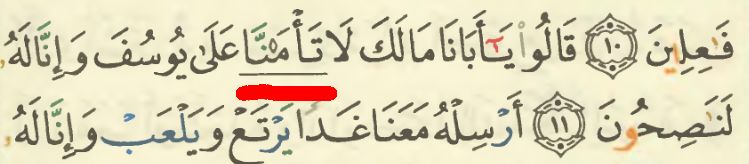 فَـٰعِلِينَ ١٠ قَالُوا۟ يَـٰٓأَبَانَا مَالَكَ لَا تَأْمَ۫نَّا عَلَىٰ يُوسُفَ وَإِنَّا لَهُۥ
لَنَـٰصِحُونَ ١١ أَرْسِلْهُ مَعَنَا غَدًا يَرْتَعْ وَيَلْعَبْ وَإِنَّا لَهُۥ